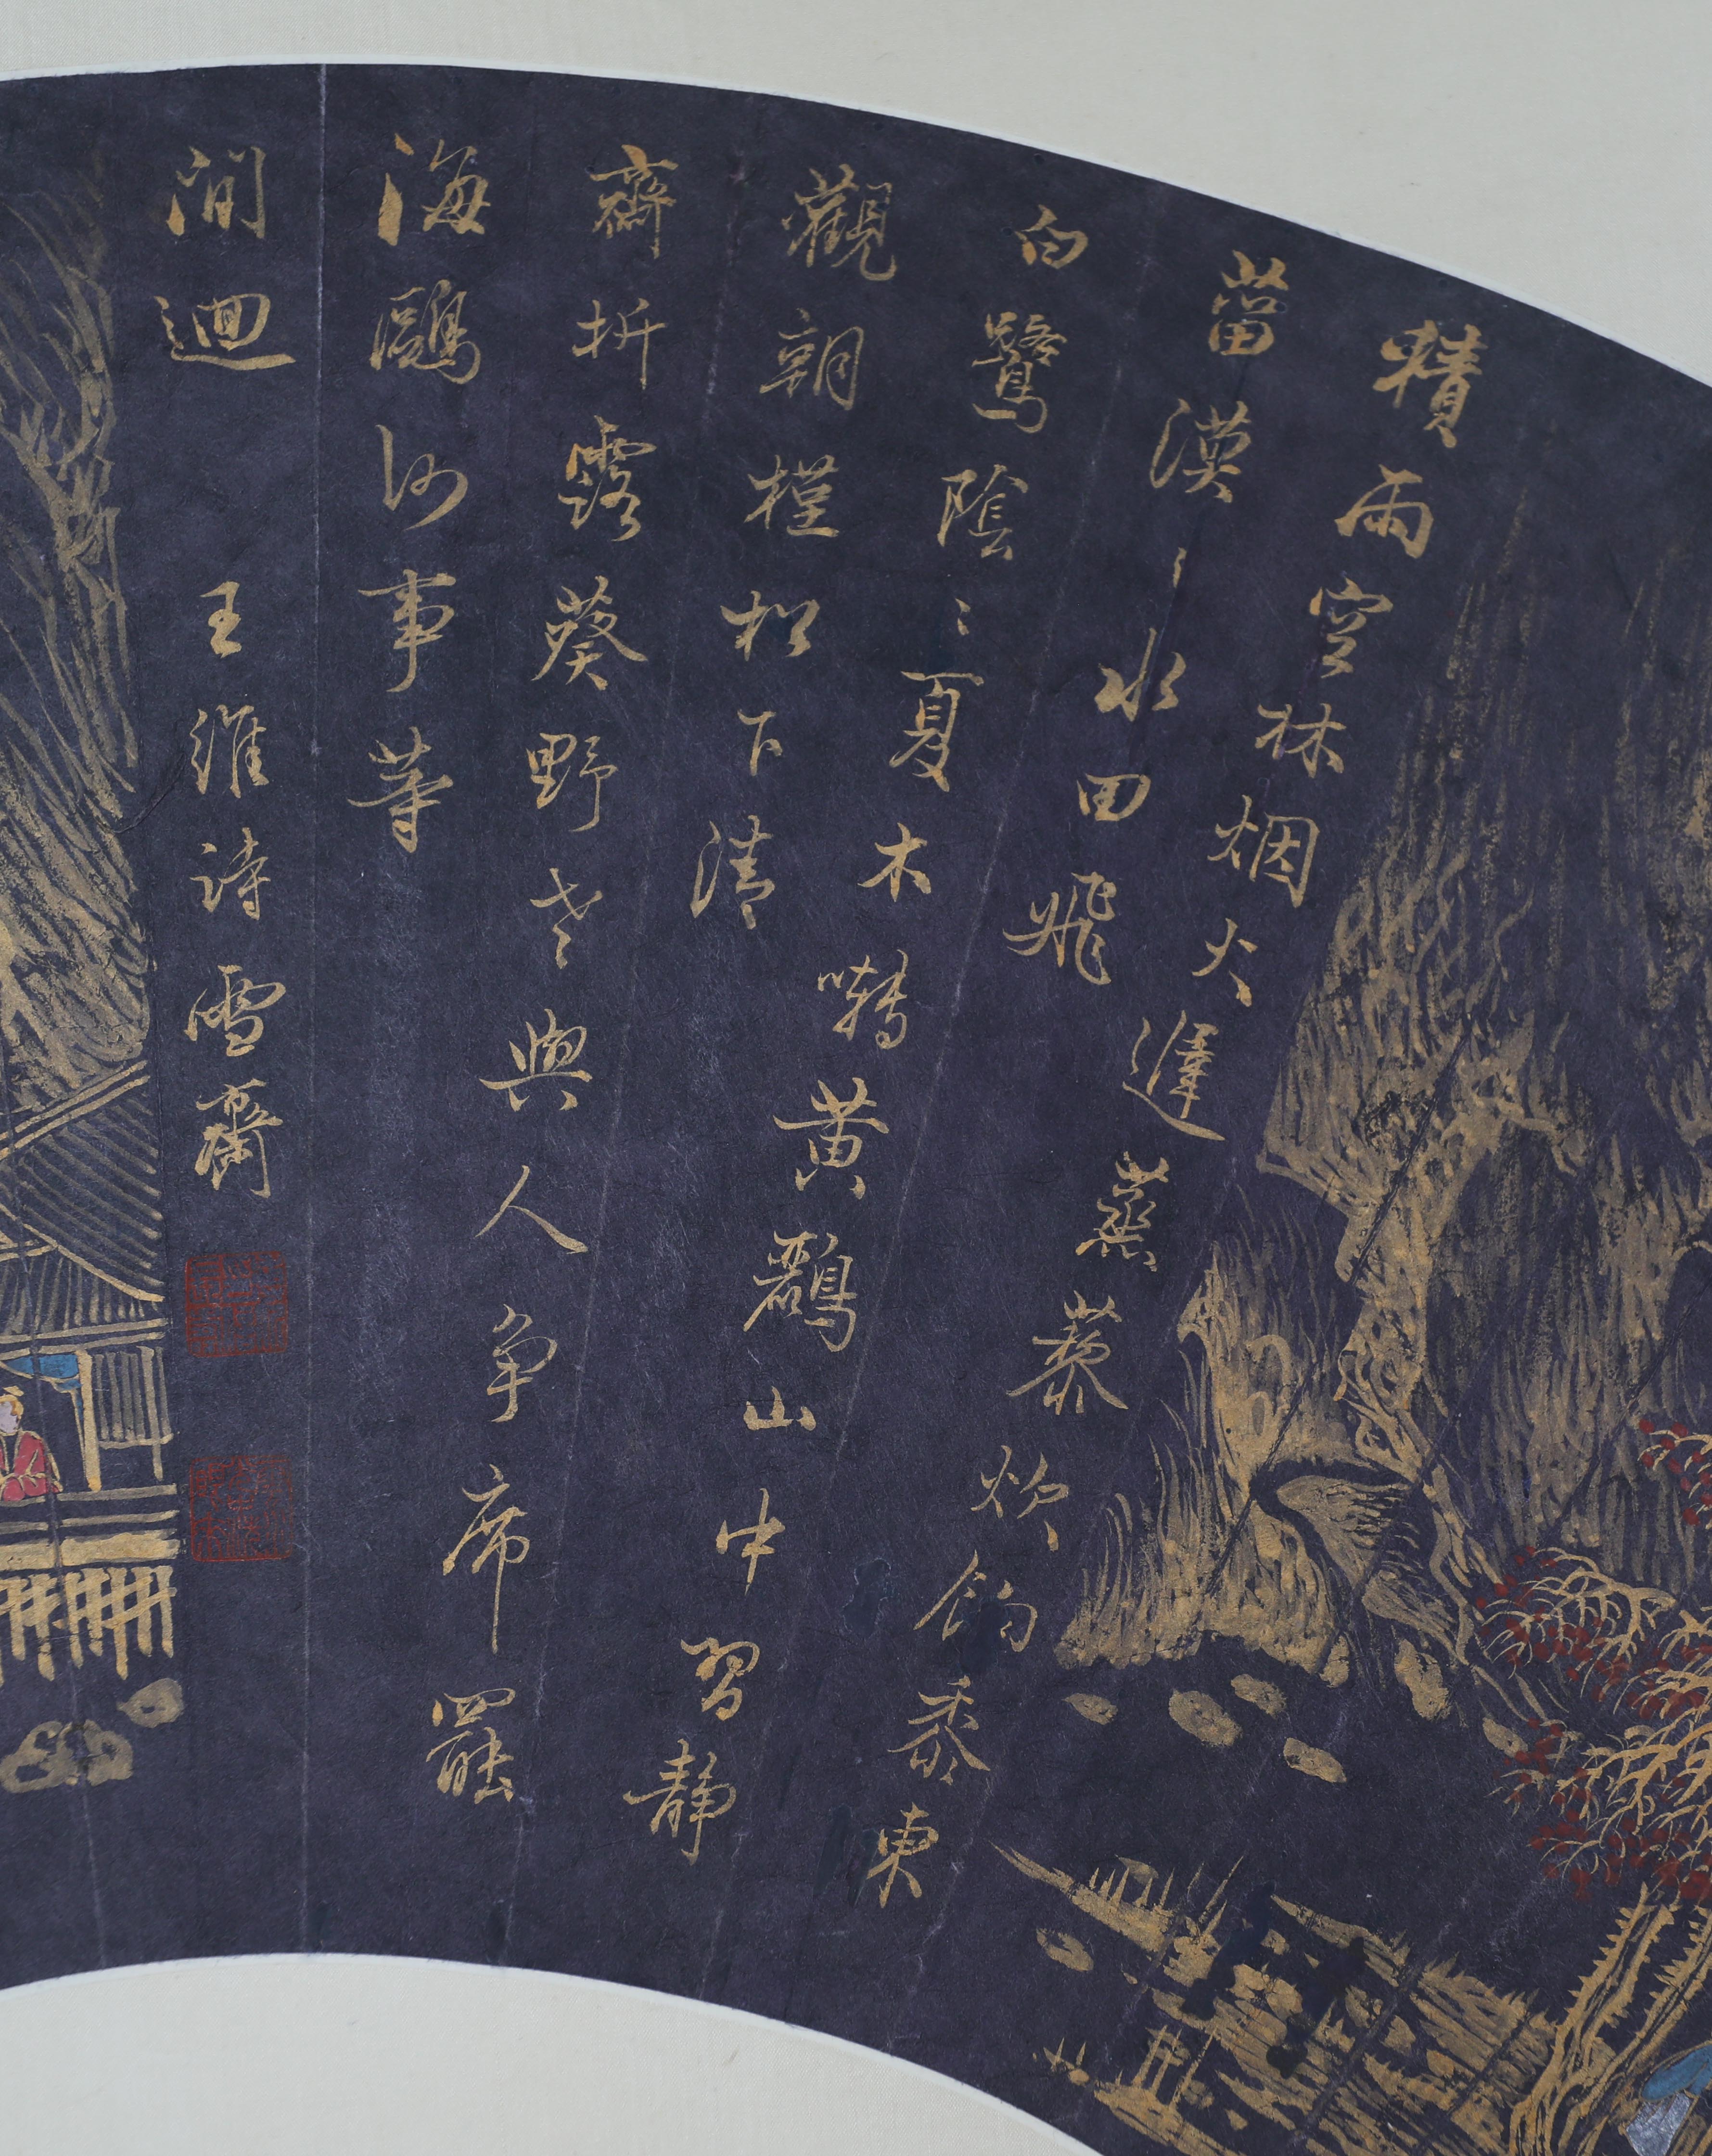 積雨空林烟火遲蒸藜炊餉黍東
菑漠〻水田飛
白鷺陰〻夏木囀黄鸝山中習靜
觀朝槿松下清
齋折露葵野老與人爭席罷
海鷗何事等
間迴 王維詩 雪齋